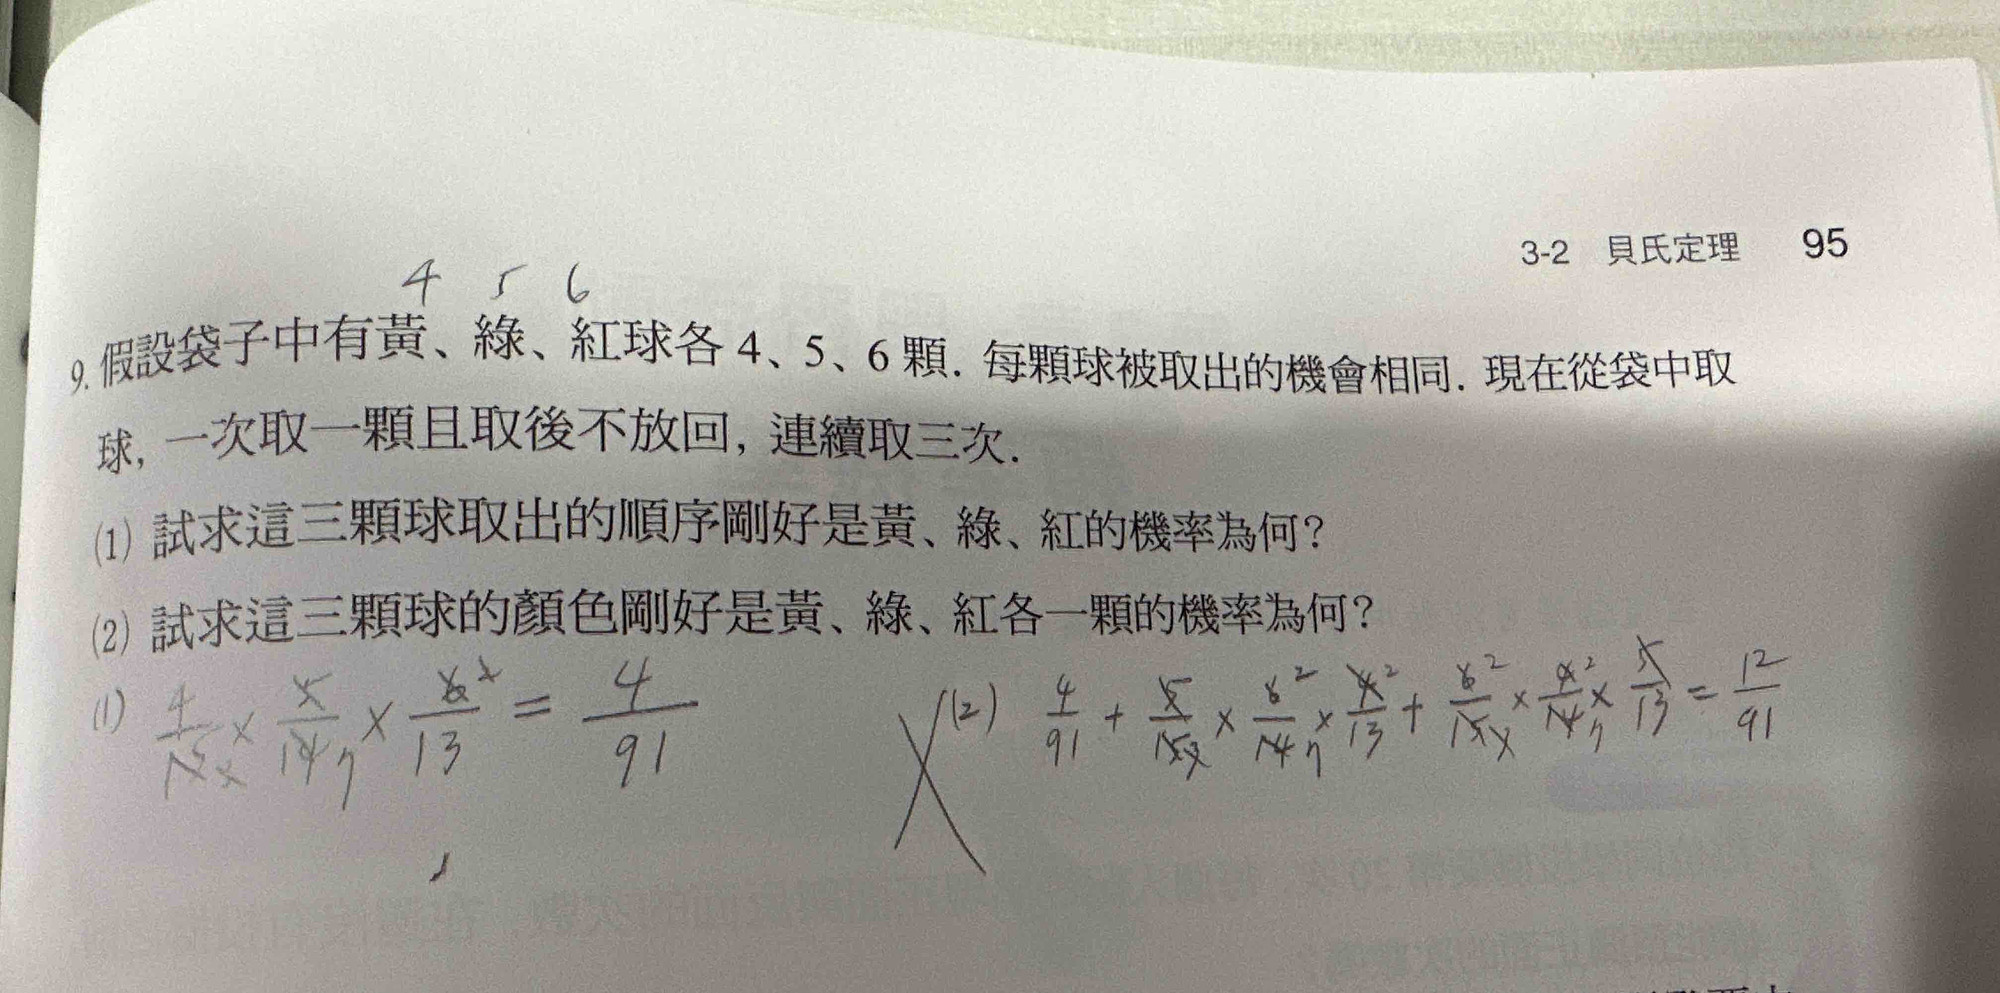 3-2 貝氏定理 95
4 5 6
9. 假設袋子中有黃、綠、紅球各 4、5、6 顆. 每顆球被取出的機會相同. 現在從袋中取
球, 一次取一顆且取後不放回, 連續取三次.
(1) 試求這三顆球取出的順序剛好是黃、綠、紅的機率為何?
(2) 試求這三顆球的顏色剛好是黃、綠、紅各一顆的機率為何?
(1) 4/15 × 5/14 × 6/13 = 4/91
(2) 4/91 + 5/15 × 6/14 × 4/13 + 6/15 × 4/14 × 5/13 = 12/91